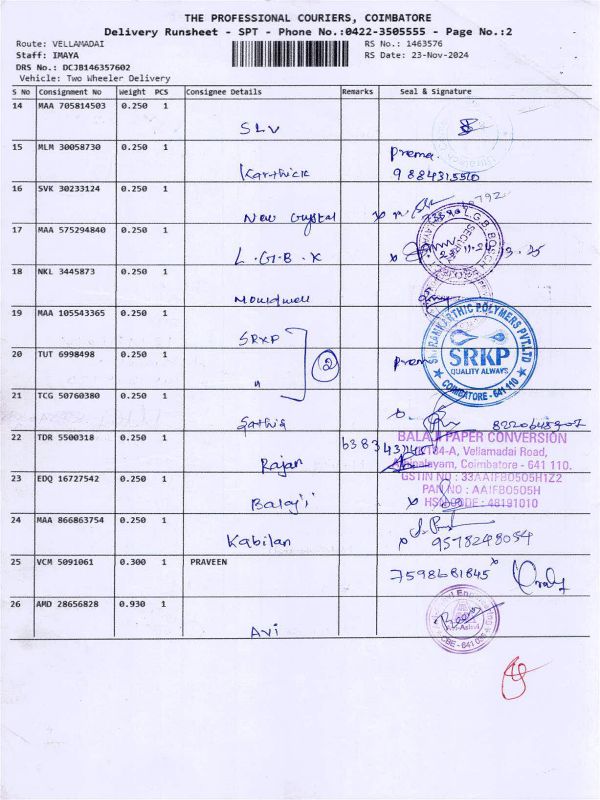 THE PROFESSIONAL COURIERS, COIMBATORE
Delivery Runsheet - SPT - Phone No.:0422-3505555 - Page No.:2
Route: VELLAMADAI
RS No.: 1463576
Staff: IMAYA
RS Date: 23-Nov-2024
DRS No.: DCJB146357602
Vehicle: Two Wheeler Delivery
S No Consignment No Weight PCS Consignee Details Remarks Seal & Signature
14 MAA 705814503 0.250 1
SLV
15 MLM 30058730 0.250 1
Prema
Karthick
16 SVK 30233124 0.250 1
New Crystal
17 MAA 575294840 0.250 1
L.G.B.X
18 NKL 3445873 0.250 1
Mouldwell
19 MAA 105543365 0.250 1
SRKP
SRI RANKARTHIC POLYMERS PVT.LTD
SRKP
QUALITY ALWAYS
COIMBATORE - 641 110
20 TUT 6998498 0.250 1
"
2
Prem
21 TCG 50760380 0.250 1
Sathis
22 TDR 5500318 0.250 1
Rajan
BALAJI PAPER CONVERSION
Vellamadai Road,
Coimbatore - 641 110.
GSTIN NO : 33AAIFB0505H1Z2
PAN NO : AAIFB0505H
HSN CODE : 48191010
23 EDQ 16727542 0.250 1
Balaji
24 MAA 866863754 0.250 1
Kabilan
9578248054
25 VCM 5091061 0.300 1 PRAVEEN
7598681845
26 AMD 28656828 0.930 1
Avi